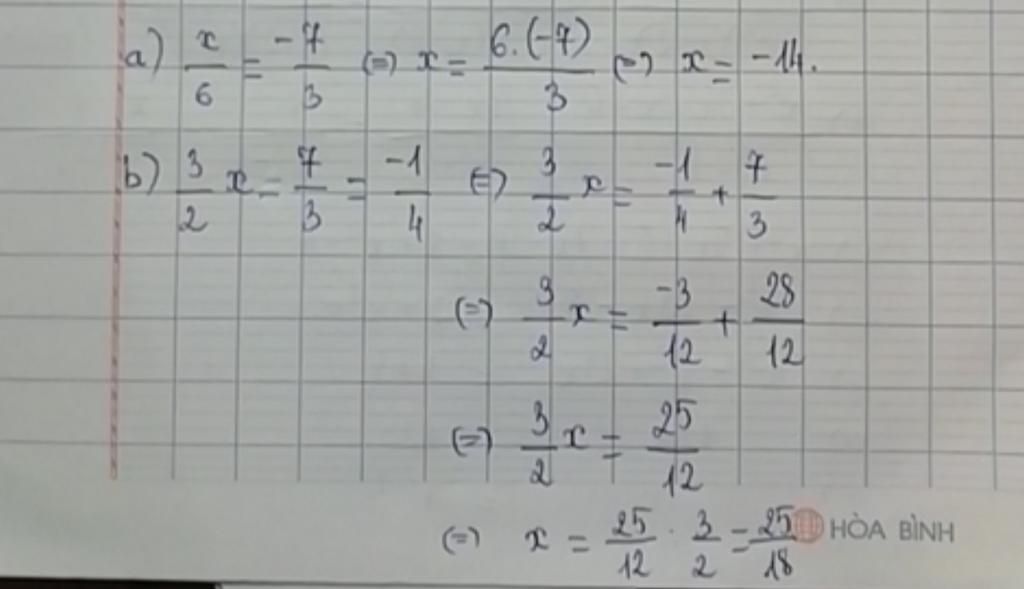 a) x/6 = -7/3 (=) x = 6.(-7)/3 (=) x = -14.
b) 3/2 x - 7/3 = -1/4 (=) 3/2 x = -1/4 + 7/3
(=) 3/2 x = -3/12 + 28/12
(=) 3/2 x = 25/12
(=) x = 25/12 . 3/2 = 25/18
HÒA BÌNH